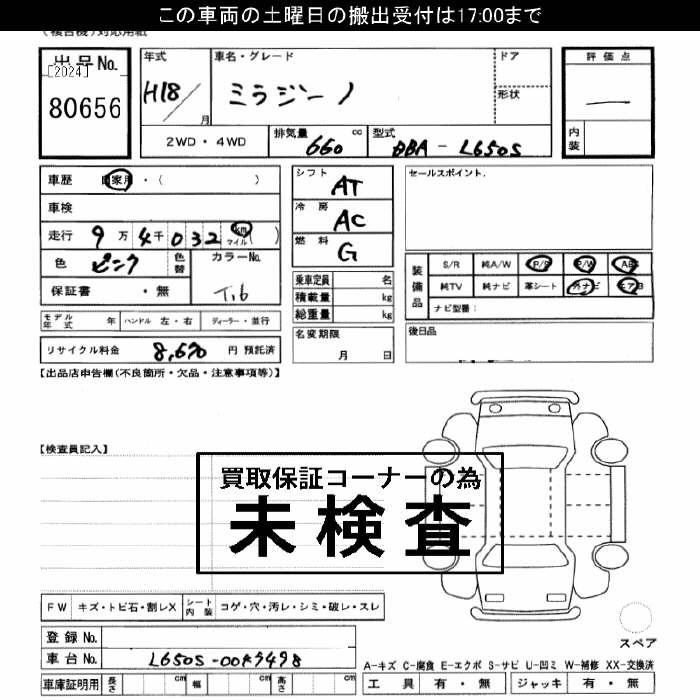 この車両の土曜日の搬出受付は17:00まで
(複合機)対応用紙
出品No.
[2024]
80656
年式
H18/ 月
車名・グレード
ミラジーノ
ドア
形状
評価点
—
内装
2WD・4WD
排気量 cc
660
型式
DBA - L650S
車歴 自家用・( )
車検
走行 9万4千032 km マイル ( )
色 ピンク 色替 カラーNo. T16
保証書 ・無
シフト AT
冷房 AC
燃料 G
乗車定員 名
積載量 kg
総重量 kg
名変期限
月 日
セールスポイント.
装備品
S/R 純A/W P/S P/W ABS
純TV 純ナビ 革シート 外ナビ エアB
ナビ型番:
後日品
モデル年式 年 ハンドル 左・右 ディーラー・並行
リサイクル料金 8,670 円 預託済
【出品店申告欄(不良箇所・欠品・注意事項等)】
【検査員記入】
買取保証コーナーの為
未検査
FW キズ・トビ石・割レX シート内装 コゲ・穴・汚レ・シミ・破レ・スレ
登録No.
車台No. L650S-00
スペア
A-キズ C-腐食 E-エクボ S-サビ U-凹ミ W-補修 XX-交換済
車庫証明用 長さ cm 幅 cm 高さ cm
工具 有・無 ジャッキ 有・無